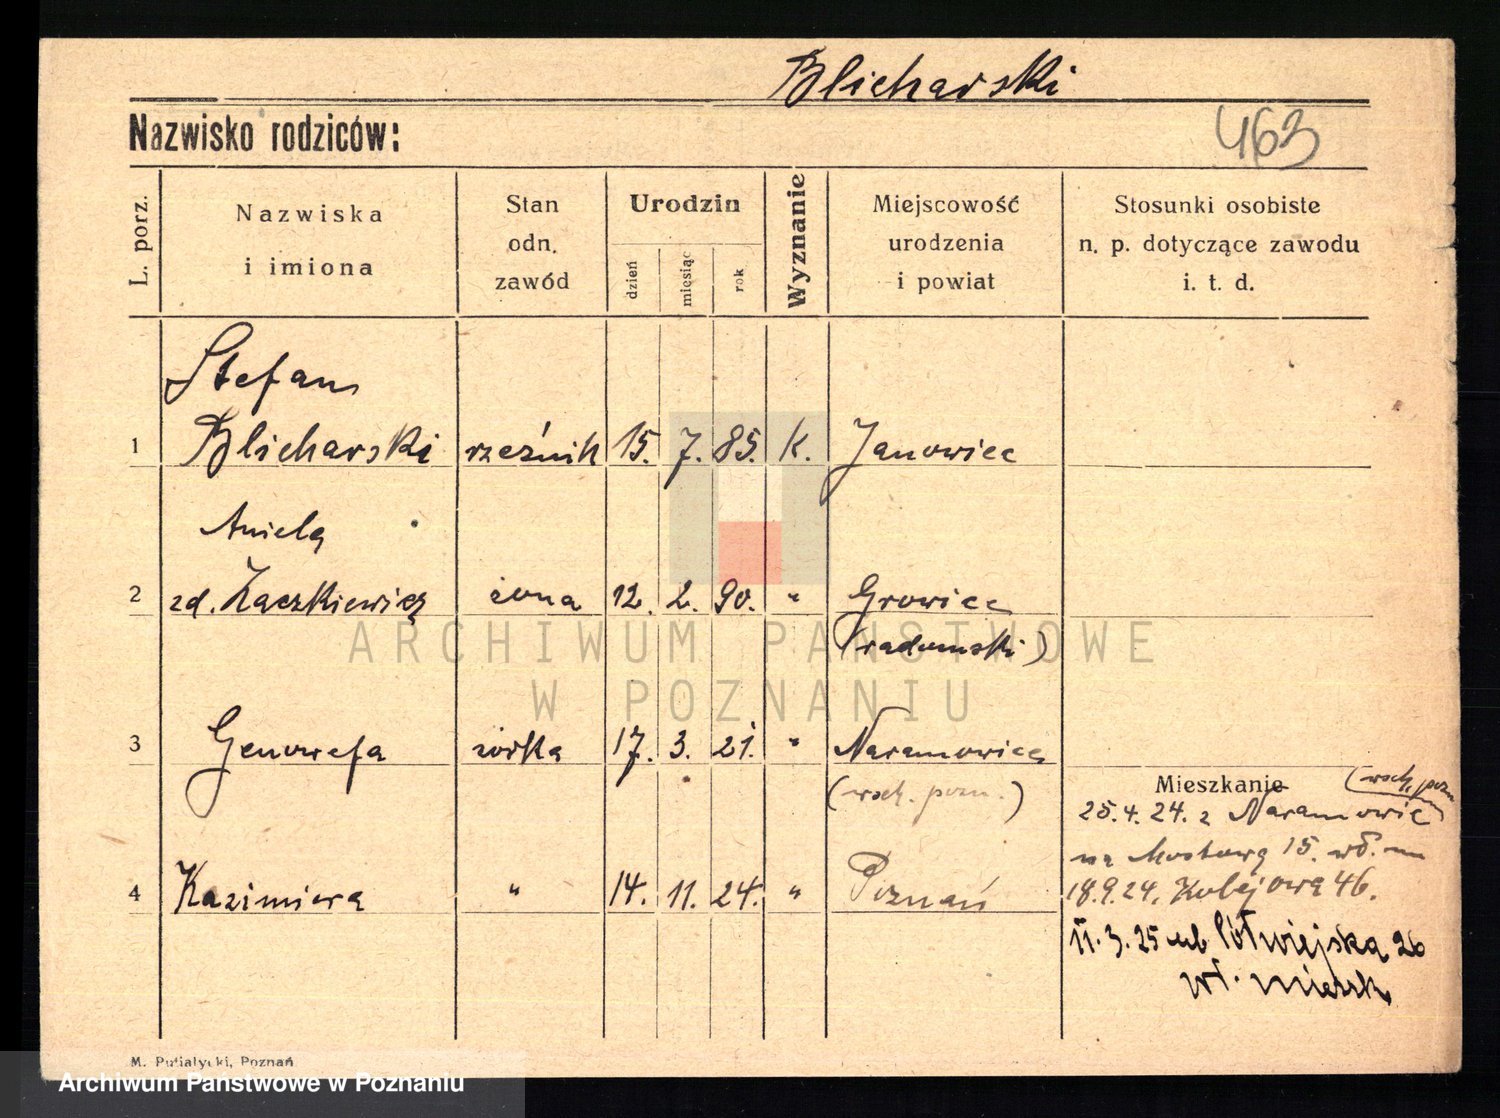 Blicharski
Nazwisko rodziców:
463
L. porz.
Nazwiska
i imiona
Stan
odn.
zawód
Urodzin
dzień
miesiąc
rok
Wyznanie
Miejscowość
urodzenia
i powiat
Stosunki osobiste
n. p. dotyczące zawodu
i. t. d.
Stefan
1 Blicharski rzeźnik 15. 7. 85. k. Janowiec
Aniela
2 zd. Żaczkiewicz żona 12. 2. 90. " Growiec
(radomski)
3 Genowefa córka 17. 3. 21. " Naramowice
(wsch. pozn.)
Mieszkanie (wsch. pozn
25.4.24. z Naramowic
na Mostową 15. wł. m
4 Kazimiera " 14. 11. 24. " Poznań
18.9.24. Kolejowa 46.
11.3.25 ul. Półwiejska 26
wł. mieszk.
M. Putiatycki, Poznań
ARCHIWUM PAŃSTWOWE
W POZNANIU
Archiwum Państwowe w Poznaniu